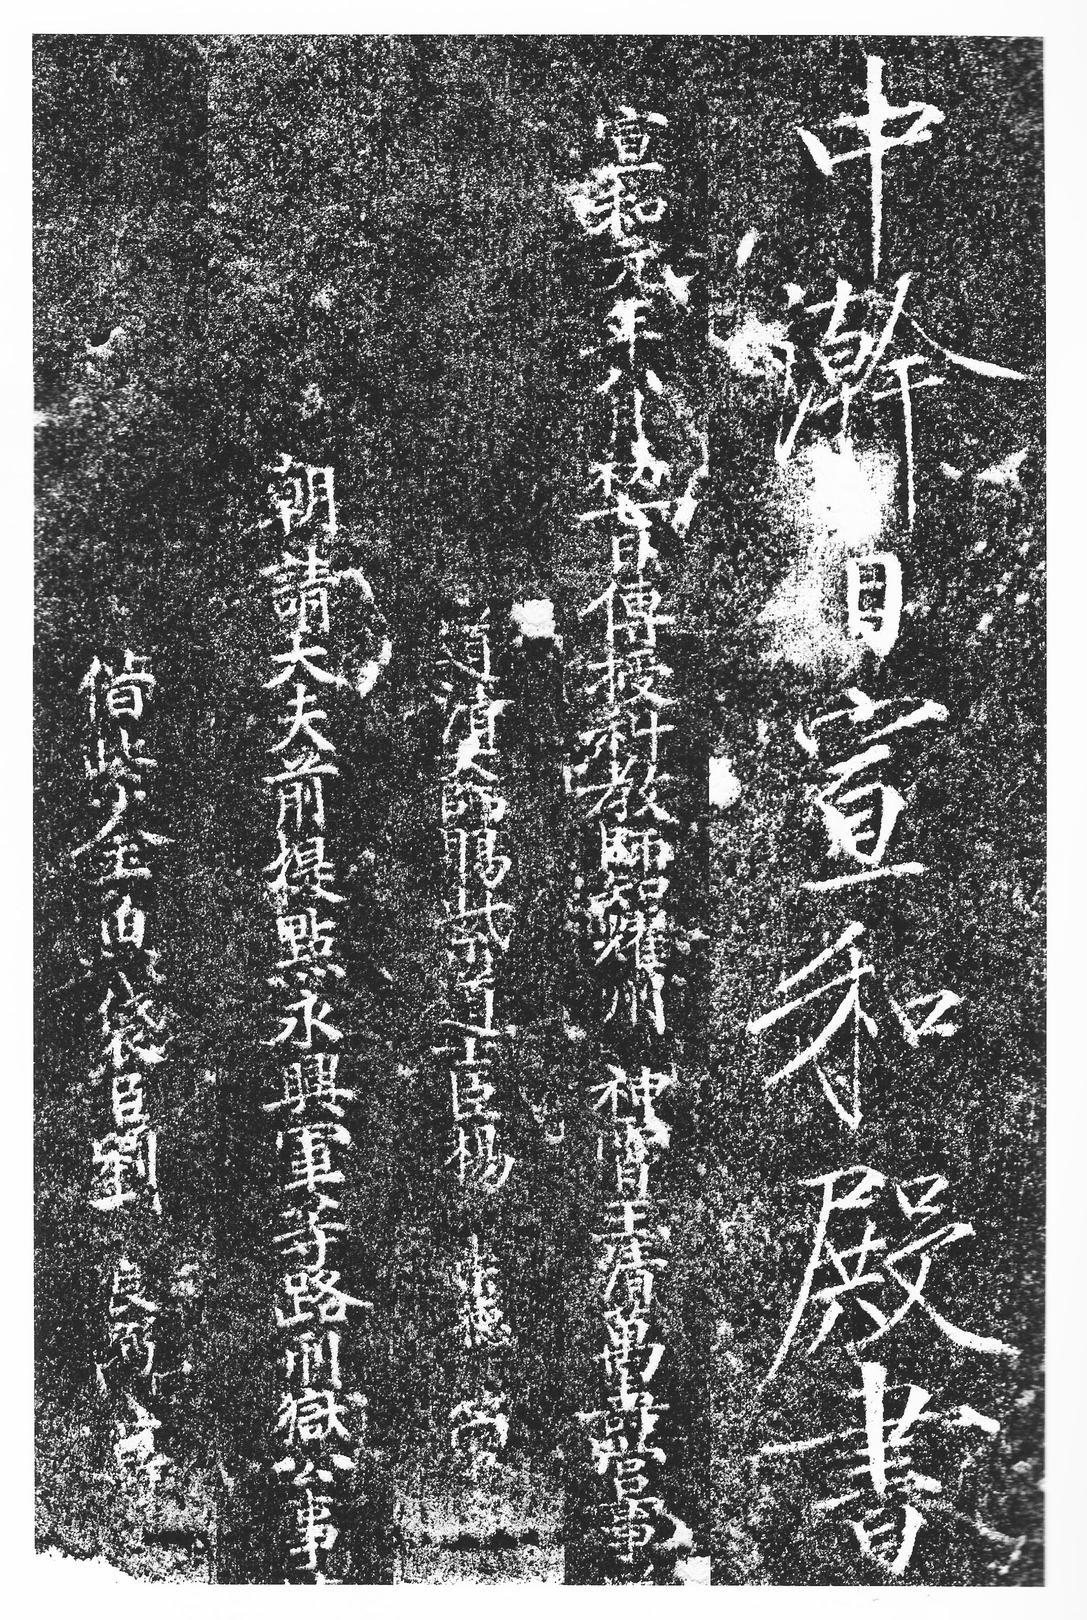 中澣日宣和殿書
宣和元年八月初七日傳授科教師知耀州 神霄玉清萬壽宮事
清大師賜道士臣楊
朝請大夫前提點永興軍等路刑獄公事
借紫金魚袋臣劉